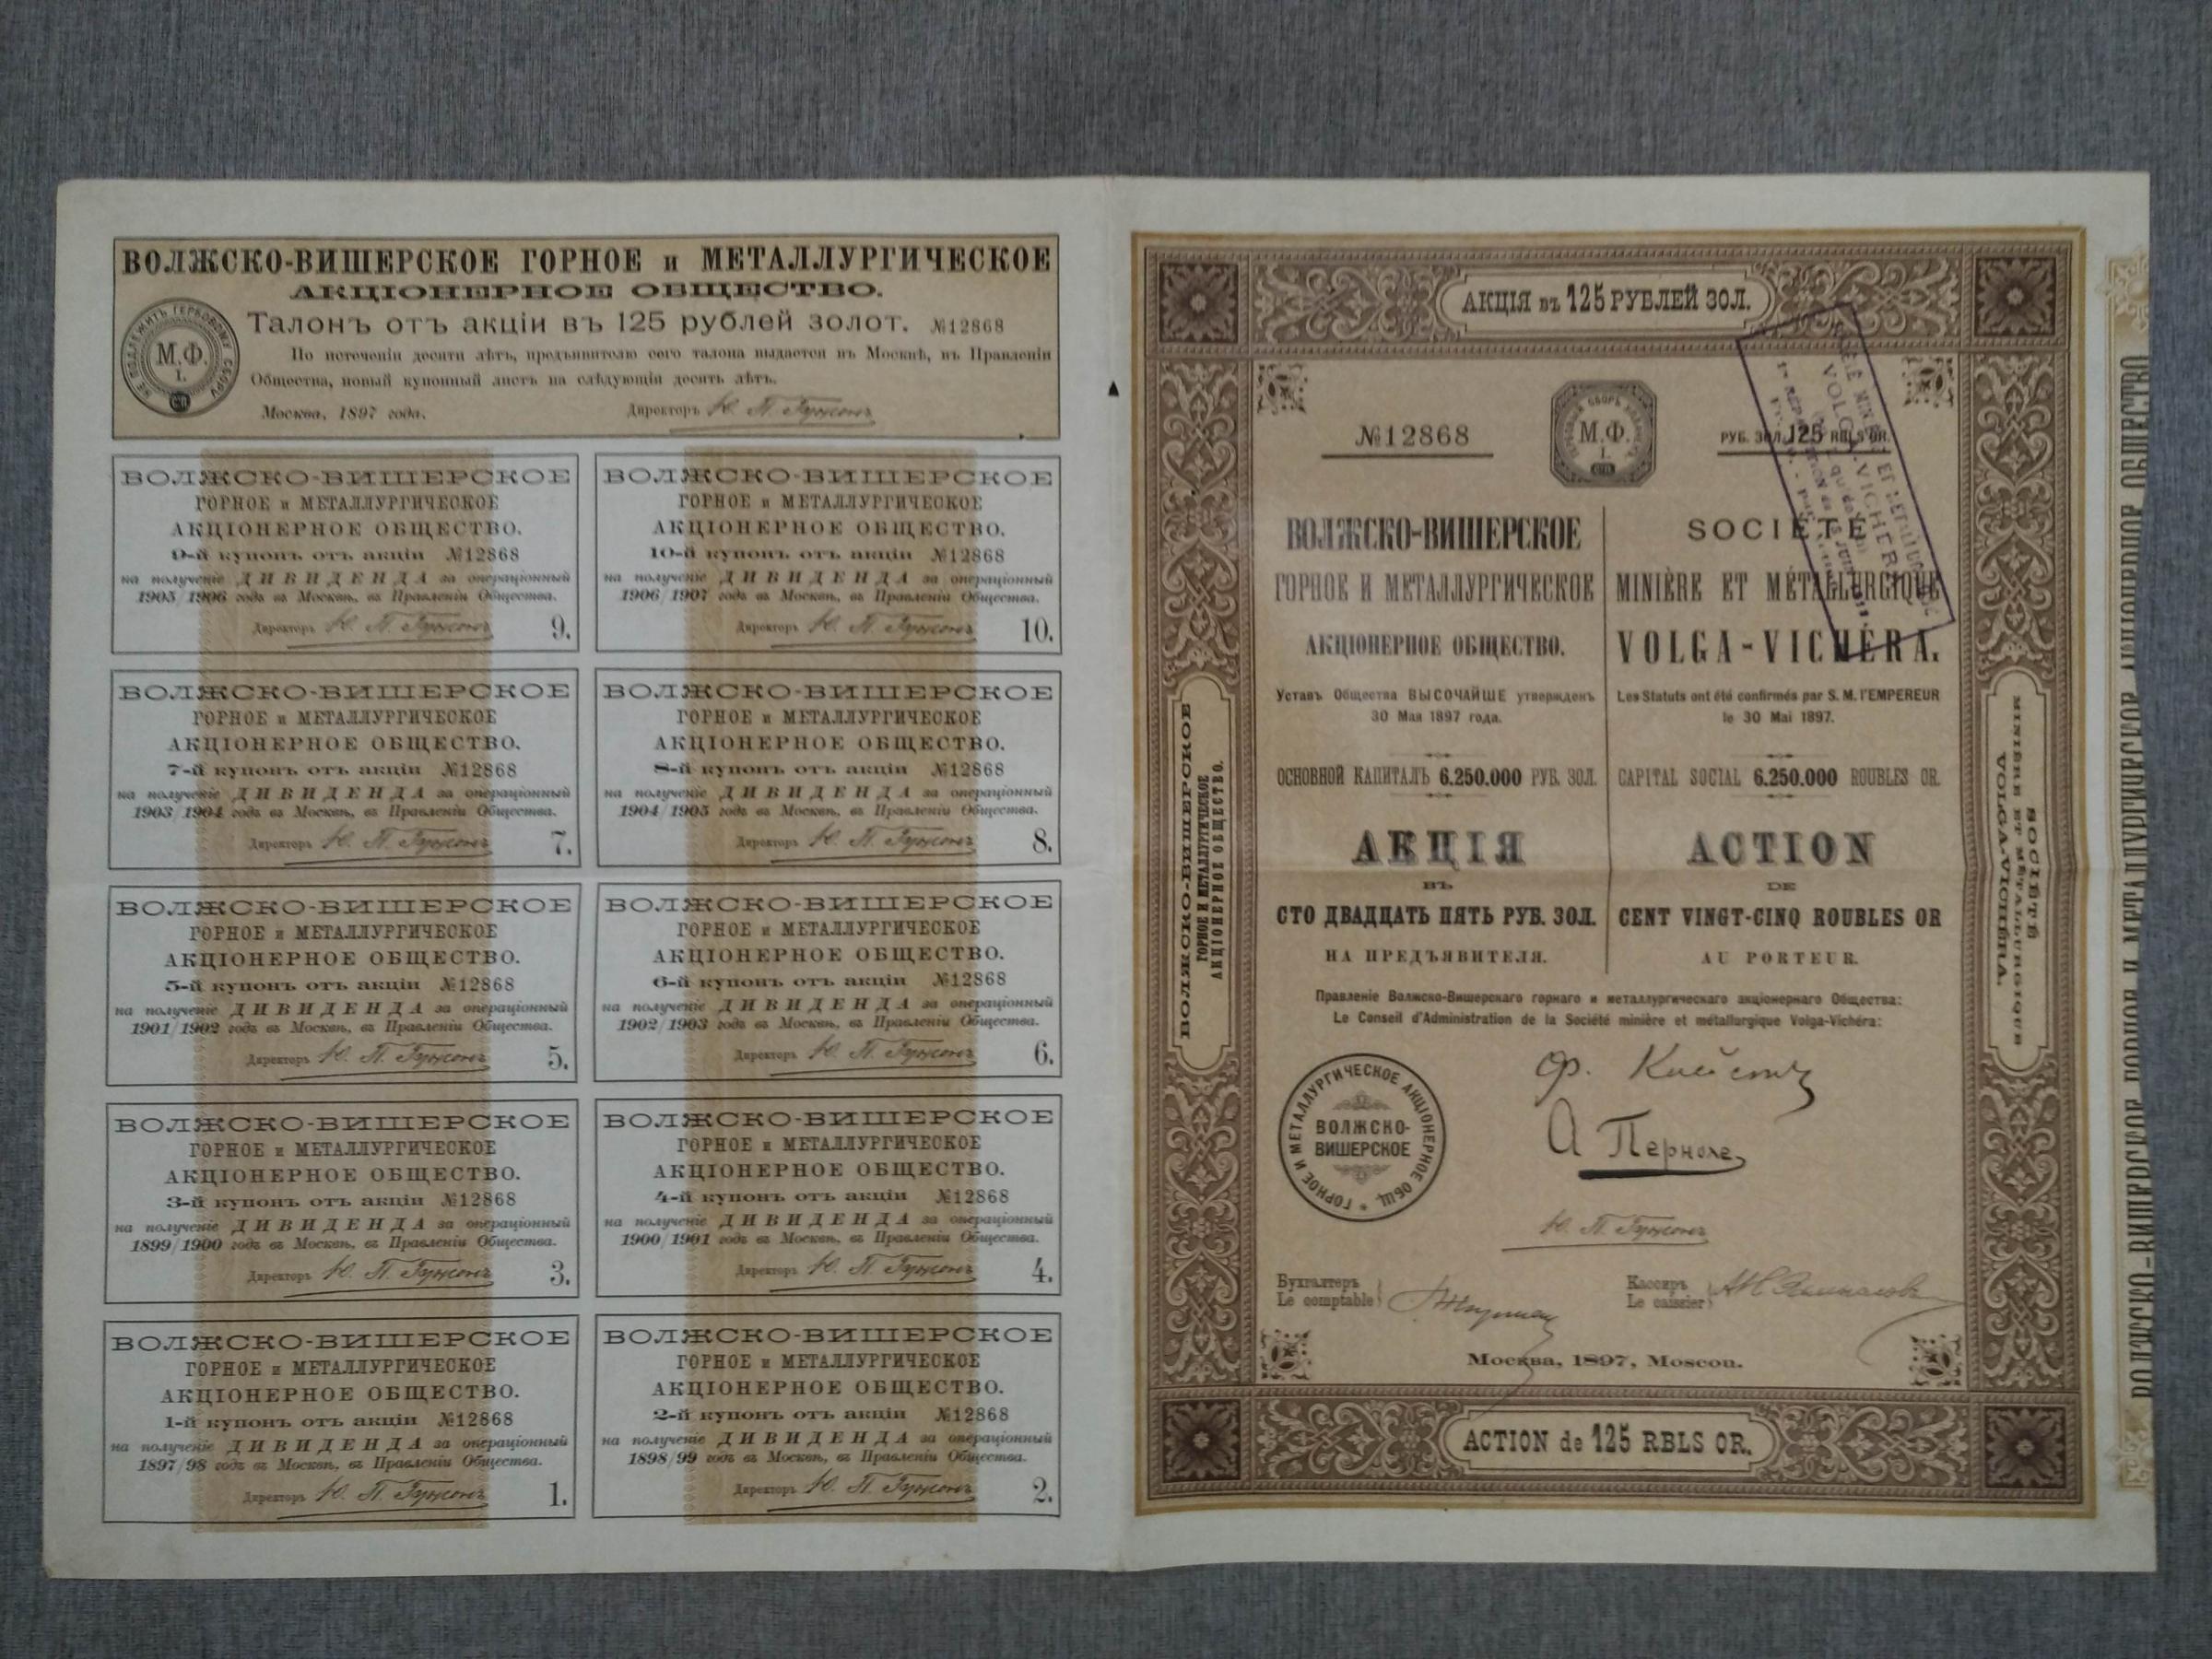 ВОЛЖСКО-ВИШЕРСКОЕ ГОРНОЕ и МЕТАЛЛУРГИЧЕСКОЕ
АКЦІОНЕРНОЕ ОБЩЕСТВО.
Талонъ отъ акціи въ 125 рублей золот. №12868
По истеченіи десяти лѣтъ, предъявителю сего талона выдается въ Москвѣ, въ Правленіи
Общества, новый купонный листъ на слѣдующія десять лѣтъ.
Москва, 1897 года. Директоръ Ю. П. Гужонъ
НЕ ПОДЛЕЖИТЪ ГЕРБОВОМУ СБОРУ
М.Ф.
I.
ВОЛЖСКО-ВИШЕРСКОЕ
ГОРНОЕ и МЕТАЛЛУРГИЧЕСКОЕ
АКЦІОНЕРНОЕ ОБЩЕСТВО.
9-й купонъ отъ акціи №12868
на полученіе ДИВИДЕНДА за операціонный
1905/1906 годъ въ Москвѣ, въ Правленіи Общества.
Директоръ Ю. П. Гужонъ 9.
ВОЛЖСКО-ВИШЕРСКОЕ
ГОРНОЕ и МЕТАЛЛУРГИЧЕСКОЕ
АКЦІОНЕРНОЕ ОБЩЕСТВО.
10-й купонъ отъ акціи №12868
на полученіе ДИВИДЕНДА за операціонный
1906/1907 годъ въ Москвѣ, въ Правленіи Общества.
Директоръ Ю. П. Гужонъ 10.
ВОЛЖСКО-ВИШЕРСКОЕ
ГОРНОЕ и МЕТАЛЛУРГИЧЕСКОЕ
АКЦІОНЕРНОЕ ОБЩЕСТВО.
7-й купонъ отъ акціи №12868
на полученіе ДИВИДЕНДА за операціонный
1903/1904 годъ въ Москвѣ, въ Правленіи Общества.
Директоръ Ю. П. Гужонъ 7.
ВОЛЖСКО-ВИШЕРСКОЕ
ГОРНОЕ и МЕТАЛЛУРГИЧЕСКОЕ
АКЦІОНЕРНОЕ ОБЩЕСТВО.
8-й купонъ отъ акціи №12868
на полученіе ДИВИДЕНДА за операціонный
1904/1905 годъ въ Москвѣ, въ Правленіи Общества.
Директоръ Ю. П. Гужонъ 8.
ВОЛЖСКО-ВИШЕРСКОЕ
ГОРНОЕ и МЕТАЛЛУРГИЧЕСКОЕ
АКЦІОНЕРНОЕ ОБЩЕСТВО.
5-й купонъ отъ акціи №12868
на полученіе ДИВИДЕНДА за операціонный
1901/1902 годъ въ Москвѣ, въ Правленіи Общества.
Директоръ Ю. П. Гужонъ 5.
ВОЛЖСКО-ВИШЕРСКОЕ
ГОРНОЕ и МЕТАЛЛУРГИЧЕСКОЕ
АКЦІОНЕРНОЕ ОБЩЕСТВО.
6-й купонъ отъ акціи №12868
на полученіе ДИВИДЕНДА за операціонный
1902/1903 годъ въ Москвѣ, въ Правленіи Общества.
Директоръ Ю. П. Гужонъ 6.
ВОЛЖСКО-ВИШЕРСКОЕ
ГОРНОЕ и МЕТАЛЛУРГИЧЕСКОЕ
АКЦІОНЕРНОЕ ОБЩЕСТВО.
3-й купонъ отъ акціи №12868
на полученіе ДИВИДЕНДА за операціонный
1899/1900 годъ въ Москвѣ, въ Правленіи Общества.
Директоръ Ю. П. Гужонъ 3.
ВОЛЖСКО-ВИШЕРСКОЕ
ГОРНОЕ и МЕТАЛЛУРГИЧЕСКОЕ
АКЦІОНЕРНОЕ ОБЩЕСТВО.
4-й купонъ отъ акціи №12868
на полученіе ДИВИДЕНДА за операціонный
1900/1901 годъ въ Москвѣ, въ Правленіи Общества.
Директоръ Ю. П. Гужонъ 4.
ВОЛЖСКО-ВИШЕРСКОЕ
ГОРНОЕ и МЕТАЛЛУРГИЧЕСКОЕ
АКЦІОНЕРНОЕ ОБЩЕСТВО.
1-й купонъ отъ акціи №12868
на полученіе ДИВИДЕНДА за операціонный
1897/98 годъ въ Москвѣ, въ Правленіи Общества.
Директоръ Ю. П. Гужонъ 1.
ВОЛЖСКО-ВИШЕРСКОЕ
ГОРНОЕ и МЕТАЛЛУРГИЧЕСКОЕ
АКЦІОНЕРНОЕ ОБЩЕСТВО.
2-й купонъ отъ акціи №12868
на полученіе ДИВИДЕНДА за операціонный
1898/99 годъ въ Москвѣ, въ Правленіи Общества.
Директоръ Ю. П. Гужонъ 2.
АКЦІЯ въ 125 РУБЛЕЙ ЗОЛ.
№12868
М.Ф.
I.
РУБ. ЗОЛ. 125 RBLS OR.
ВОЛЖСКО-ВИШЕРСКОЕ
ГОРНОЕ И МЕТАЛЛУРГИЧЕСКОЕ
АКЦІОНЕРНОЕ ОБЩЕСТВО.
Уставъ Общества ВЫСОЧАЙШЕ утвержденъ
30 Мая 1897 года.
ОСНОВНОЙ КАПИТАЛЪ 6.250.000 РУБ. ЗОЛ.
АКЦІЯ
ВЪ
СТО ДВАДЦАТЬ ПЯТЬ РУБ. ЗОЛ.
НА ПРЕДЪЯВИТЕЛЯ.
SOCIÉTÉ
MINIÈRE ET MÉTALLURGIQUE
VOLGA-VICHÉRA.
Les Statuts ont été confirmés par S. M. l'EMPEREUR
le 30 Mai 1897.
CAPITAL SOCIAL 6.250.000 ROUBLES OR.
ACTION
DE
CENT VINGT-CINQ ROUBLES OR
AU PORTEUR.
VOLGA-VICHERA
Правленіе Волжско-Вишерскаго горнаго и металлургическаго акціонернаго Общества:
Le Conseil d'Administration de la Société minière et métallurgique Volga-Vichéra:
ГОРНОЕ И МЕТАЛЛУРГИЧЕСКОЕ АКЦІОНЕРНОЕ ОБЩ.
ВОЛЖСКО-
ВИШЕРСКОЕ
Ю. П. Гужонъ
Бухгалтеръ
Le comptable
Кассиръ
Le caissier
Москва, 1897, Moscou.
ACTION de 125 RBLS OR.
ВОЛЖСКО-ВИШЕРСКОЕ
ГОРНОЕ И МЕТАЛЛУРГИЧЕСКОЕ
АКЦІОНЕРНОЕ ОБЩЕСТВО.
SOCIÉTÉ
MINIÈRE ET MÉTALLURGIQUE
VOLGA-VICHÉRA.
ВОЛЖСКО-ВИШЕРСКОЕ ГОРНОЕ И МЕТАЛЛУРГИЧЕСКОЕ АКЦІОНЕРНОЕ ОБЩЕСТВО